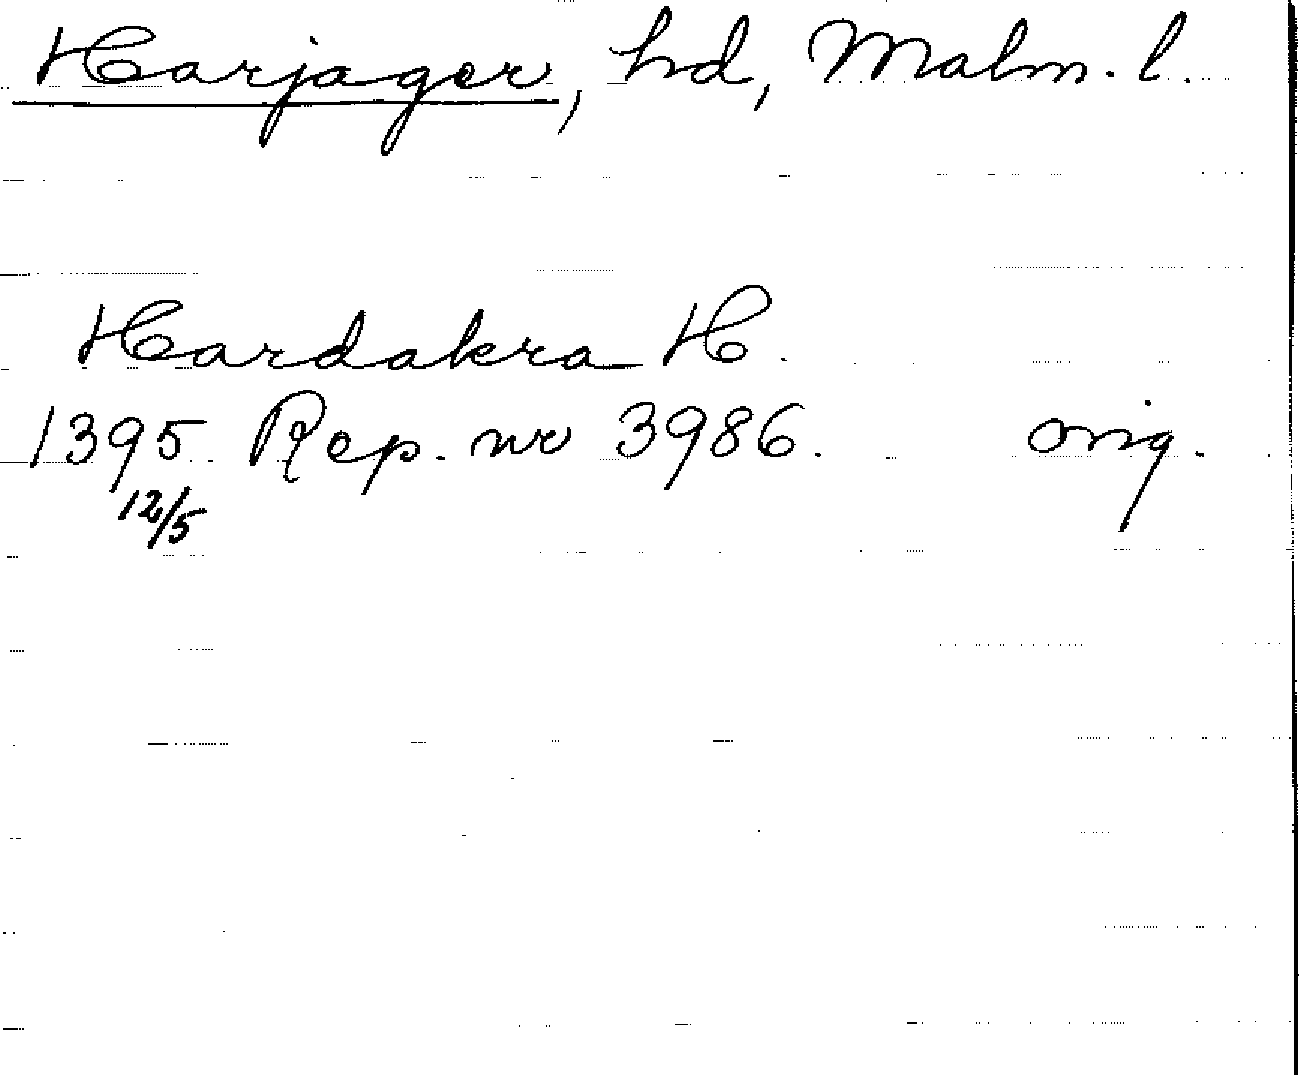 Harjager, hd, Malm. l.
Hardakra H.
1395 Rep. nr 3986. orig.
12/5